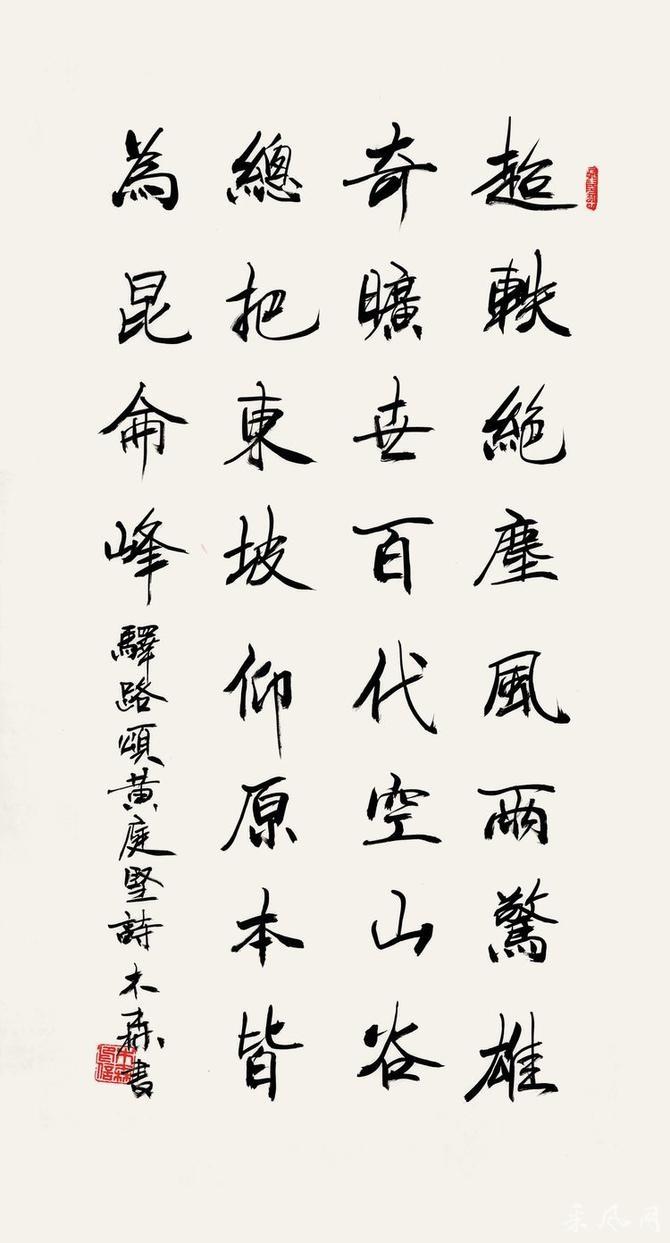 超軼絕塵風雨驚雄
奇曠世百代空山谷
總把東坡仰原本皆
為昆侖峰
驛路頌黃庭堅詩木森書
采风网